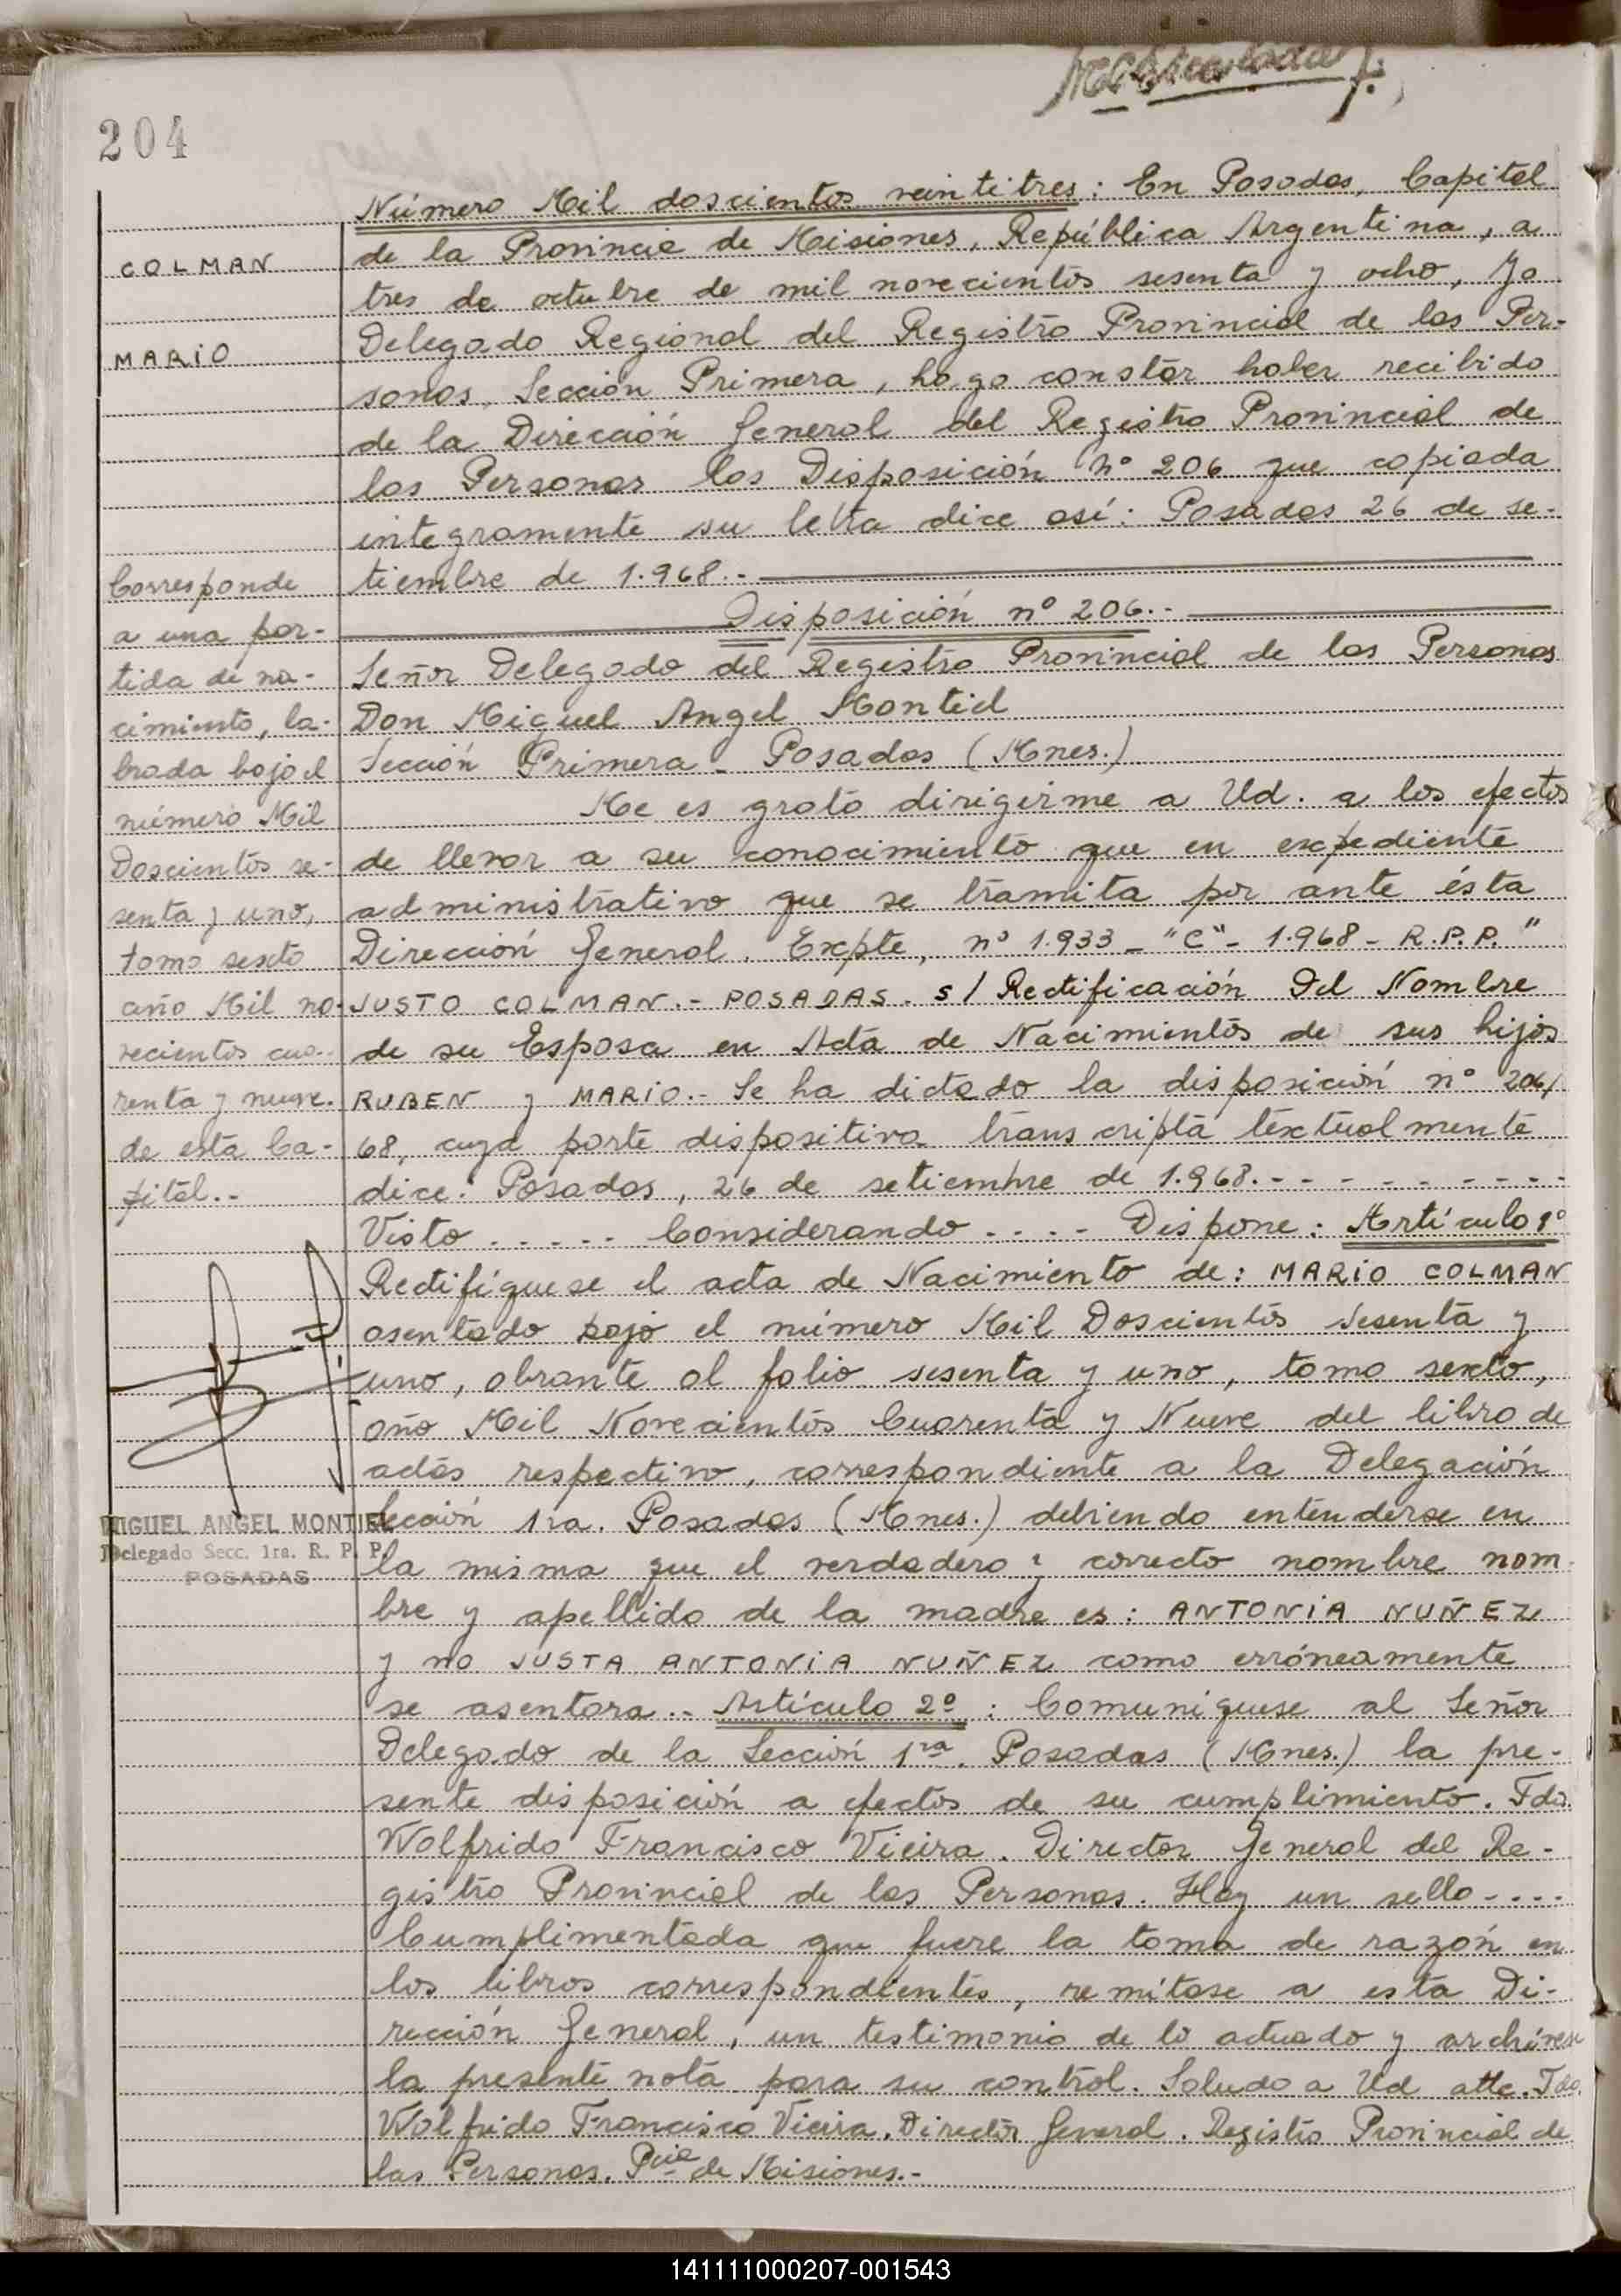 204
Número Mil doscientos veintitres: En Posadas, Capital
de la Provincia de Misiones, República Argentina, a
tres de octubre de mil novecientos sesenta y ocho, Yo
Delegado Regional del Registro Provincial de las Per-
sonas, Sección Primera, hago constar haber recibido
de la Dirección General del Registro Provincial de
las Personas las Disposición nº 206 que copiada
integramente su letra dice así: Posadas 26 de se-
tiembre de 1.968.-
Disposición nº 206.-
Señor Delegado del Registro Provincial de las Personas
Don Miguel Angel Montiel
Sección Primera - Posadas (Mnes.)
Me es grato dirigirme a Ud. a los efectos
de llevar a su conocimiento que en expediente
administrativo que se tramita por ante ésta
Dirección General. Expte, nº 1.933 - "C" - 1.968 - R.P.P. "
JUSTO COLMAN.- POSADAS. s/ Rectificación Del Nombre
de su Esposa en Acta de Nacimientos de sus hijos
RUBEN y MARIO.- Se ha dictado la disposición nº 206/
68, cuya parte dispositiva transcripta textualmente
dice: Posadas, 26 de setiembre de 1.968.- - - - - - - - -
Visto - - - - - Considerando - - - - Dispone: Artículo 1º
Rectifíquese el acta de Nacimiento de: MARIO COLMAN
asentado bajo el número Mil Doscientos Sesenta y
uno, obrante al folio sesenta y uno, tomo sexto,
año Mil Novecientos Cuarenta y Nueve del libro de
actas respectivo, correspondiente a la Delegación
Sección 1ra. Posadas (Mnes.) debiendo entenderse en
la misma que el verdadero y correcto nombre nom-
bre y apellido de la madre es: ANTONIA NUÑEZ
y no JUSTA ANTONIA NUÑEZ como erróneamente
se asentara.- Artículo 2º: Comuníquese al Señor
Delegado de la Sección 1ra. Posadas (Mnes.) la pre-
sente disposición a efectos de su cumplimiento. Fdo.
Wolfrido Francisco Vieira. Director General del Re-
gistro Provincial de las Personas. Hay un sello - - - -
Cumplimentada que fuere la toma de razón en
los libros correspondientes, remítase a esta Di-
rección General, un testimonio de lo actuado y archívese
la presente nota para su control. Saludo a Ud atte. Fdo.
Wolfrido Francisco Vieira. Director General. Registro Provincial de
las Personas. Pcia de Misiones.-
COLMAN
MARIO
Corresponde
a una par-
tida de na-
cimiento, la-
brada bajo el
número Mil
Doscientos se-
senta y uno,
tomo sexto
año Mil no-
vecientos cua-
renta y nueve.
de esta Ca-
pital.-
MIGUEL ANGEL MONTIEL
Delegado Secc. 1ra. R. P. P.
POSADAS
141111000207-001543